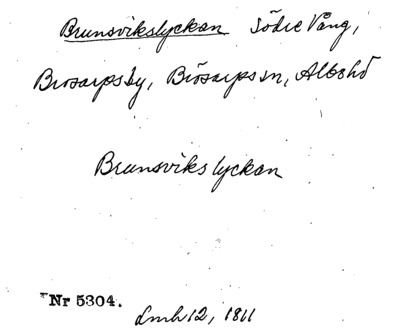 Brunsvikslyckan Södre Vång,
Brösarps by, Brösarps sn, Albo hd
Brunsvikslyckan
Nr 5304.
Lmh 12, 1811